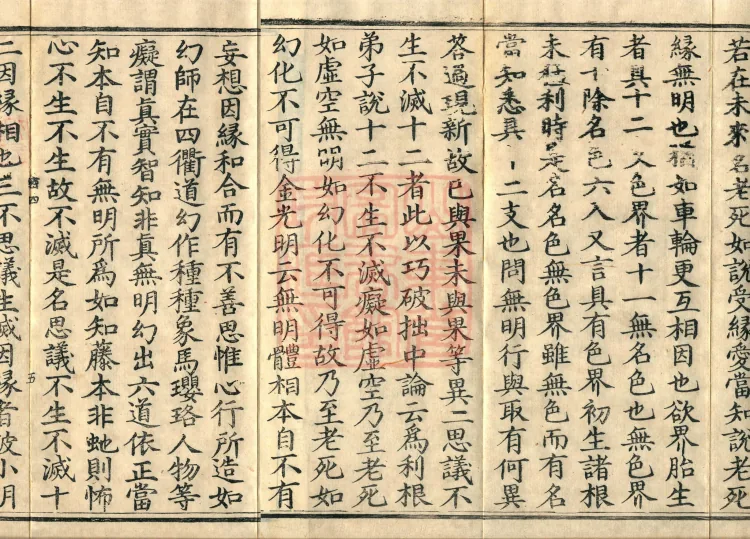 若在未來名老死如說受緣愛當知說老死
緣無明也猶如車輪更互相因也欲界胎生
者具十二支色界者十一無名色也無色界
有十除名色六入又言具有色界初生諸根
未猛利時是名名色無色界雖無色而有名
當知悉具十二支也問無明行與取有何異
答過現新故已與果未與果等異二思議不
生不滅十二者此以巧破拙中論云為利根
弟子說十二不生不滅癡如虛空乃至老死
如虛空無明如幻化不可得故乃至老死如
幻化不可得金光明云無明體相本自不有
妄想因緣和合而有不善思惟心行所造如
幻師在四衢道幻作種種象馬瓔珞人物等
癡謂真實智知非真無明幻出六道依正當
知本自不有無明所為如知藤本非虵則怖
心不生不生故不滅是名思議不生不滅十
二因緣相也三不思議生滅因緣者破小明
五